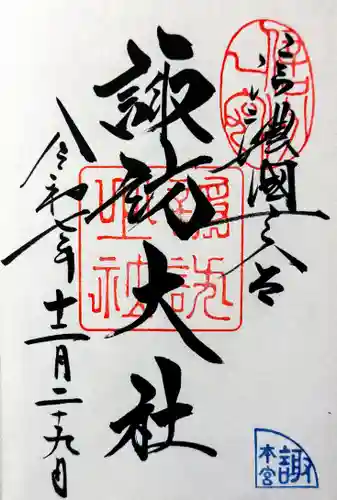 信濃國一之宮
諏訪大社
令和七年
十二月二十九日
諏
本宮